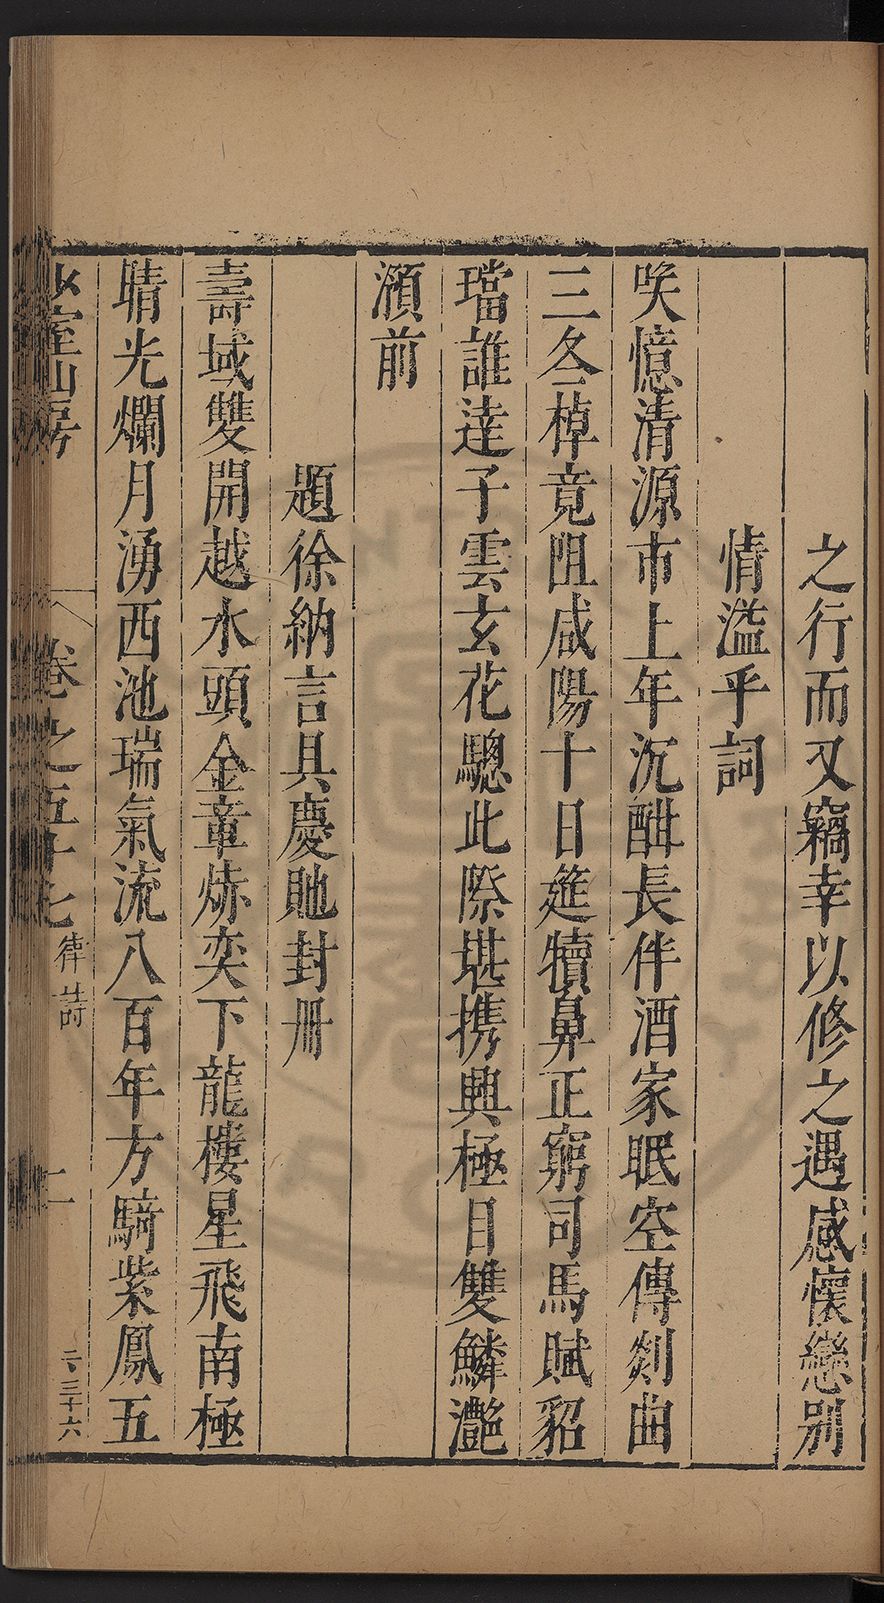 之行而又竊幸以修之遇感懷戀別
情溢乎詞
唉憶清源市上年沉酣長伴酒家眠空傳剡曲
三冬棹竟阻咸陽十日筵犢鼻正窮司馬賦貂
璫誰逹子雲玄花驄此際堪携興極目雙鱗灔
澦前
題徐納言具慶貤封冊
壽域雙開越水頭金章煥奕下龍樓星飛南極
晴光爛月湧西池瑞氣流八百年方騎紫鳳五
少室山房
卷之五十七
律詩
二
六三十六